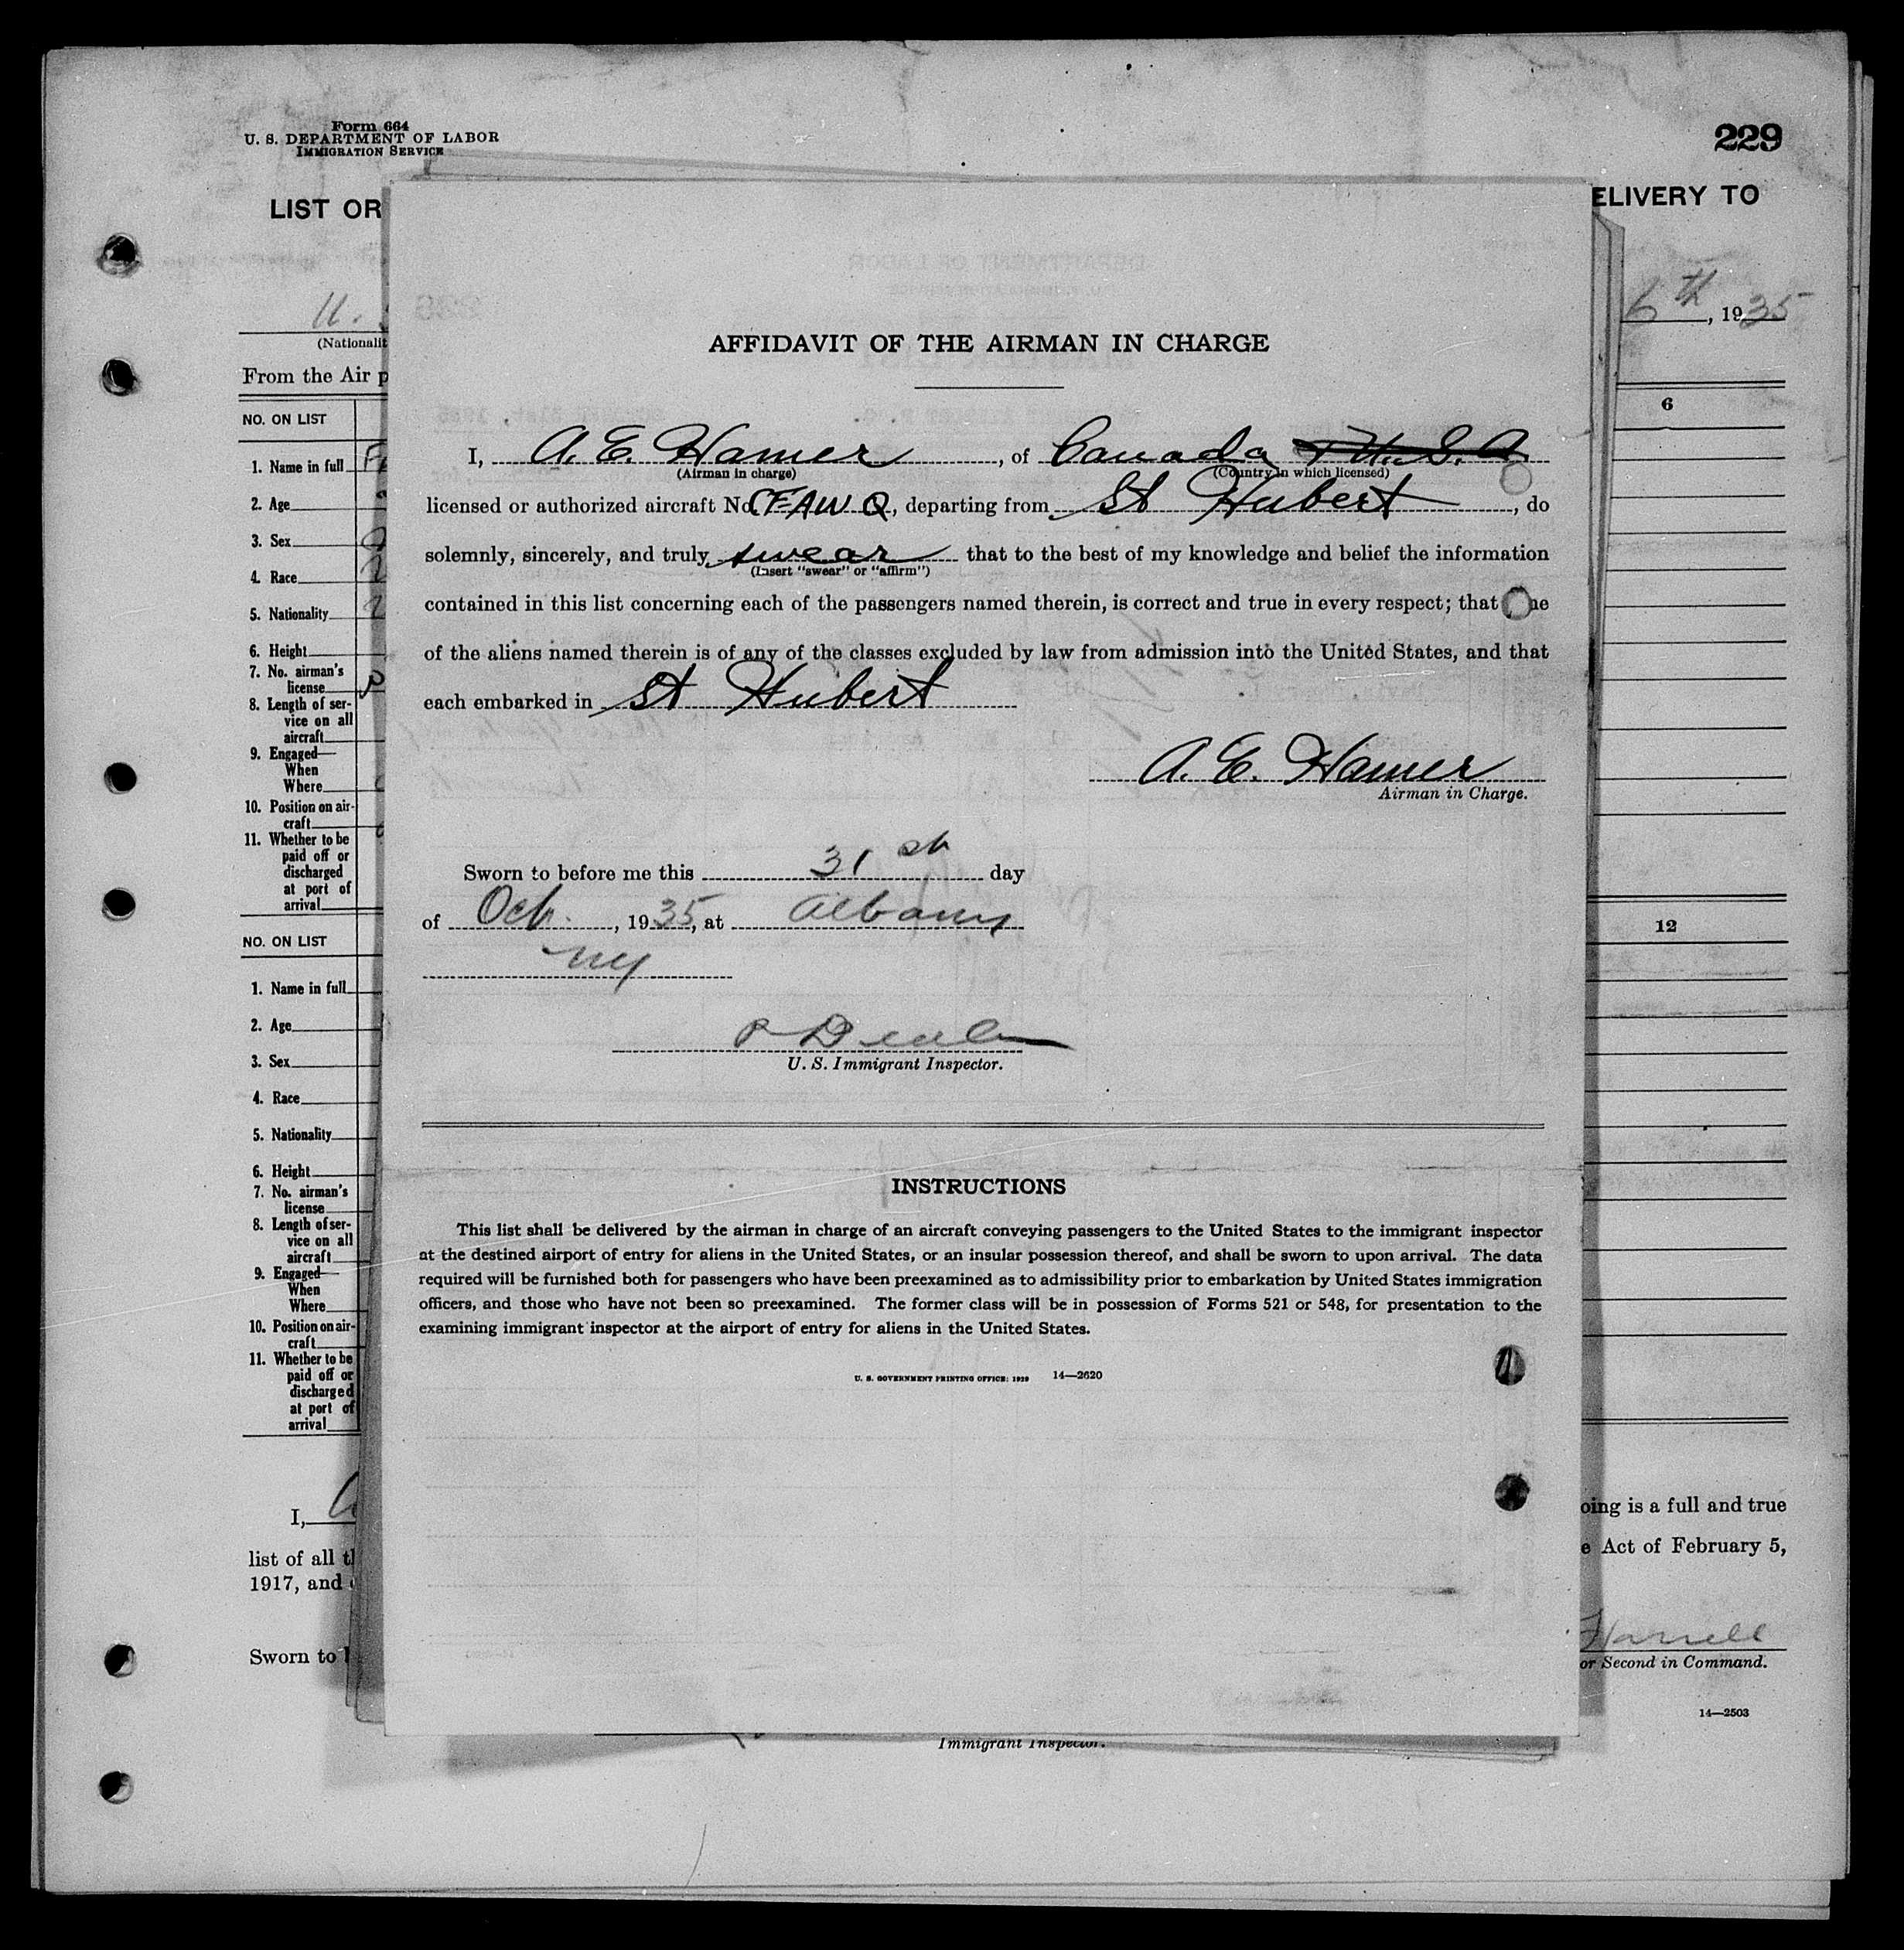 Form 664
U. S. DEPARTMENT OF LABOR
IMMIGRATION SERVICE
229
LIST OR
ELIVERY TO
U.
6th, 1935
(Nationalit
From the Air p
NO. ON LIST
6
1. Name in full
2. Age
3. Sex
4. Race
5. Nationality
6. Height
7. No. airman's
license
8. Length of ser-
vice on all
aircraft
9. Engaged—
When
Where
10. Position on air-
craft
11. Whether to be
paid off or
discharged
at port of
arrival
NO. ON LIST
12
1. Name in full
2. Age
3. Sex
4. Race
5. Nationality
6. Height
7. No. airman's
license
8. Length of ser-
vice on all
aircraft
9. Engaged—
When
Where
10. Position on air-
craft
11. Whether to be
paid off or
discharged
at port of
arrival
I,
oing is a full and true
list of all th
e Act of February 5,
1917, and
Sworn to
Harrell
or Second in Command.
14—2503
Immigrant Inspector.
AFFIDAVIT OF THE AIRMAN IN CHARGE
I, A. E. Hamer, of Canada U. S. A.
(Airman in charge) (Country in which licensed)
licensed or authorized aircraft No. CFAWQ, departing from St Hubert, do
solemnly, sincerely, and truly swear that to the best of my knowledge and belief the information
(Insert "swear" or "affirm")
contained in this list concerning each of the passengers named therein, is correct and true in every respect; that ne
of the aliens named therein is of any of the classes excluded by law from admission into the United States, and that
each embarked in St Hubert
A. E. Hamer
Airman in Charge.
Sworn to before me this 31st day
of Oct., 1935, at Albany
NY
U. S. Immigrant Inspector.
INSTRUCTIONS
This list shall be delivered by the airman in charge of an aircraft conveying passengers to the United States to the immigrant inspector
at the destined airport of entry for aliens in the United States, or an insular possession thereof, and shall be sworn to upon arrival. The data
required will be furnished both for passengers who have been preexamined as to admissibility prior to embarkation by United States immigration
officers, and those who have not been so preexamined. The former class will be in possession of Forms 521 or 548, for presentation to the
examining immigrant inspector at the airport of entry for aliens in the United States.
U. S. GOVERNMENT PRINTING OFFICE: 1929 14—2620